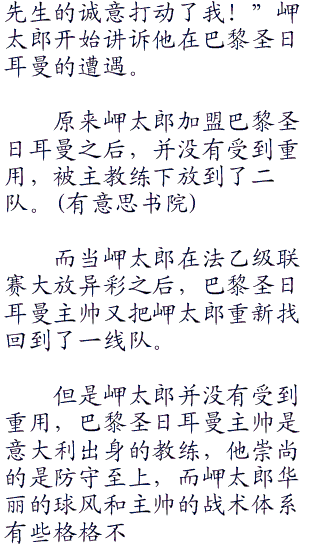 先生的诚意打动了我！”岬
太郎开始讲诉他在巴黎圣日
耳曼的遭遇。
原来岬太郎加盟巴黎圣
日耳曼之后，并没有受到重
用，被主教练下放到了二
队。(有意思书院)
而当岬太郎在法乙级联
赛大放异彩之后，巴黎圣日
耳曼主帅又把岬太郎重新找
回到了一线队。
但是岬太郎并没有受到
重用，巴黎圣日耳曼主帅是
意大利出身的教练，他崇尚
的是防守至上，而岬太郎华
丽的球风和主帅的战术体系
有些格格不